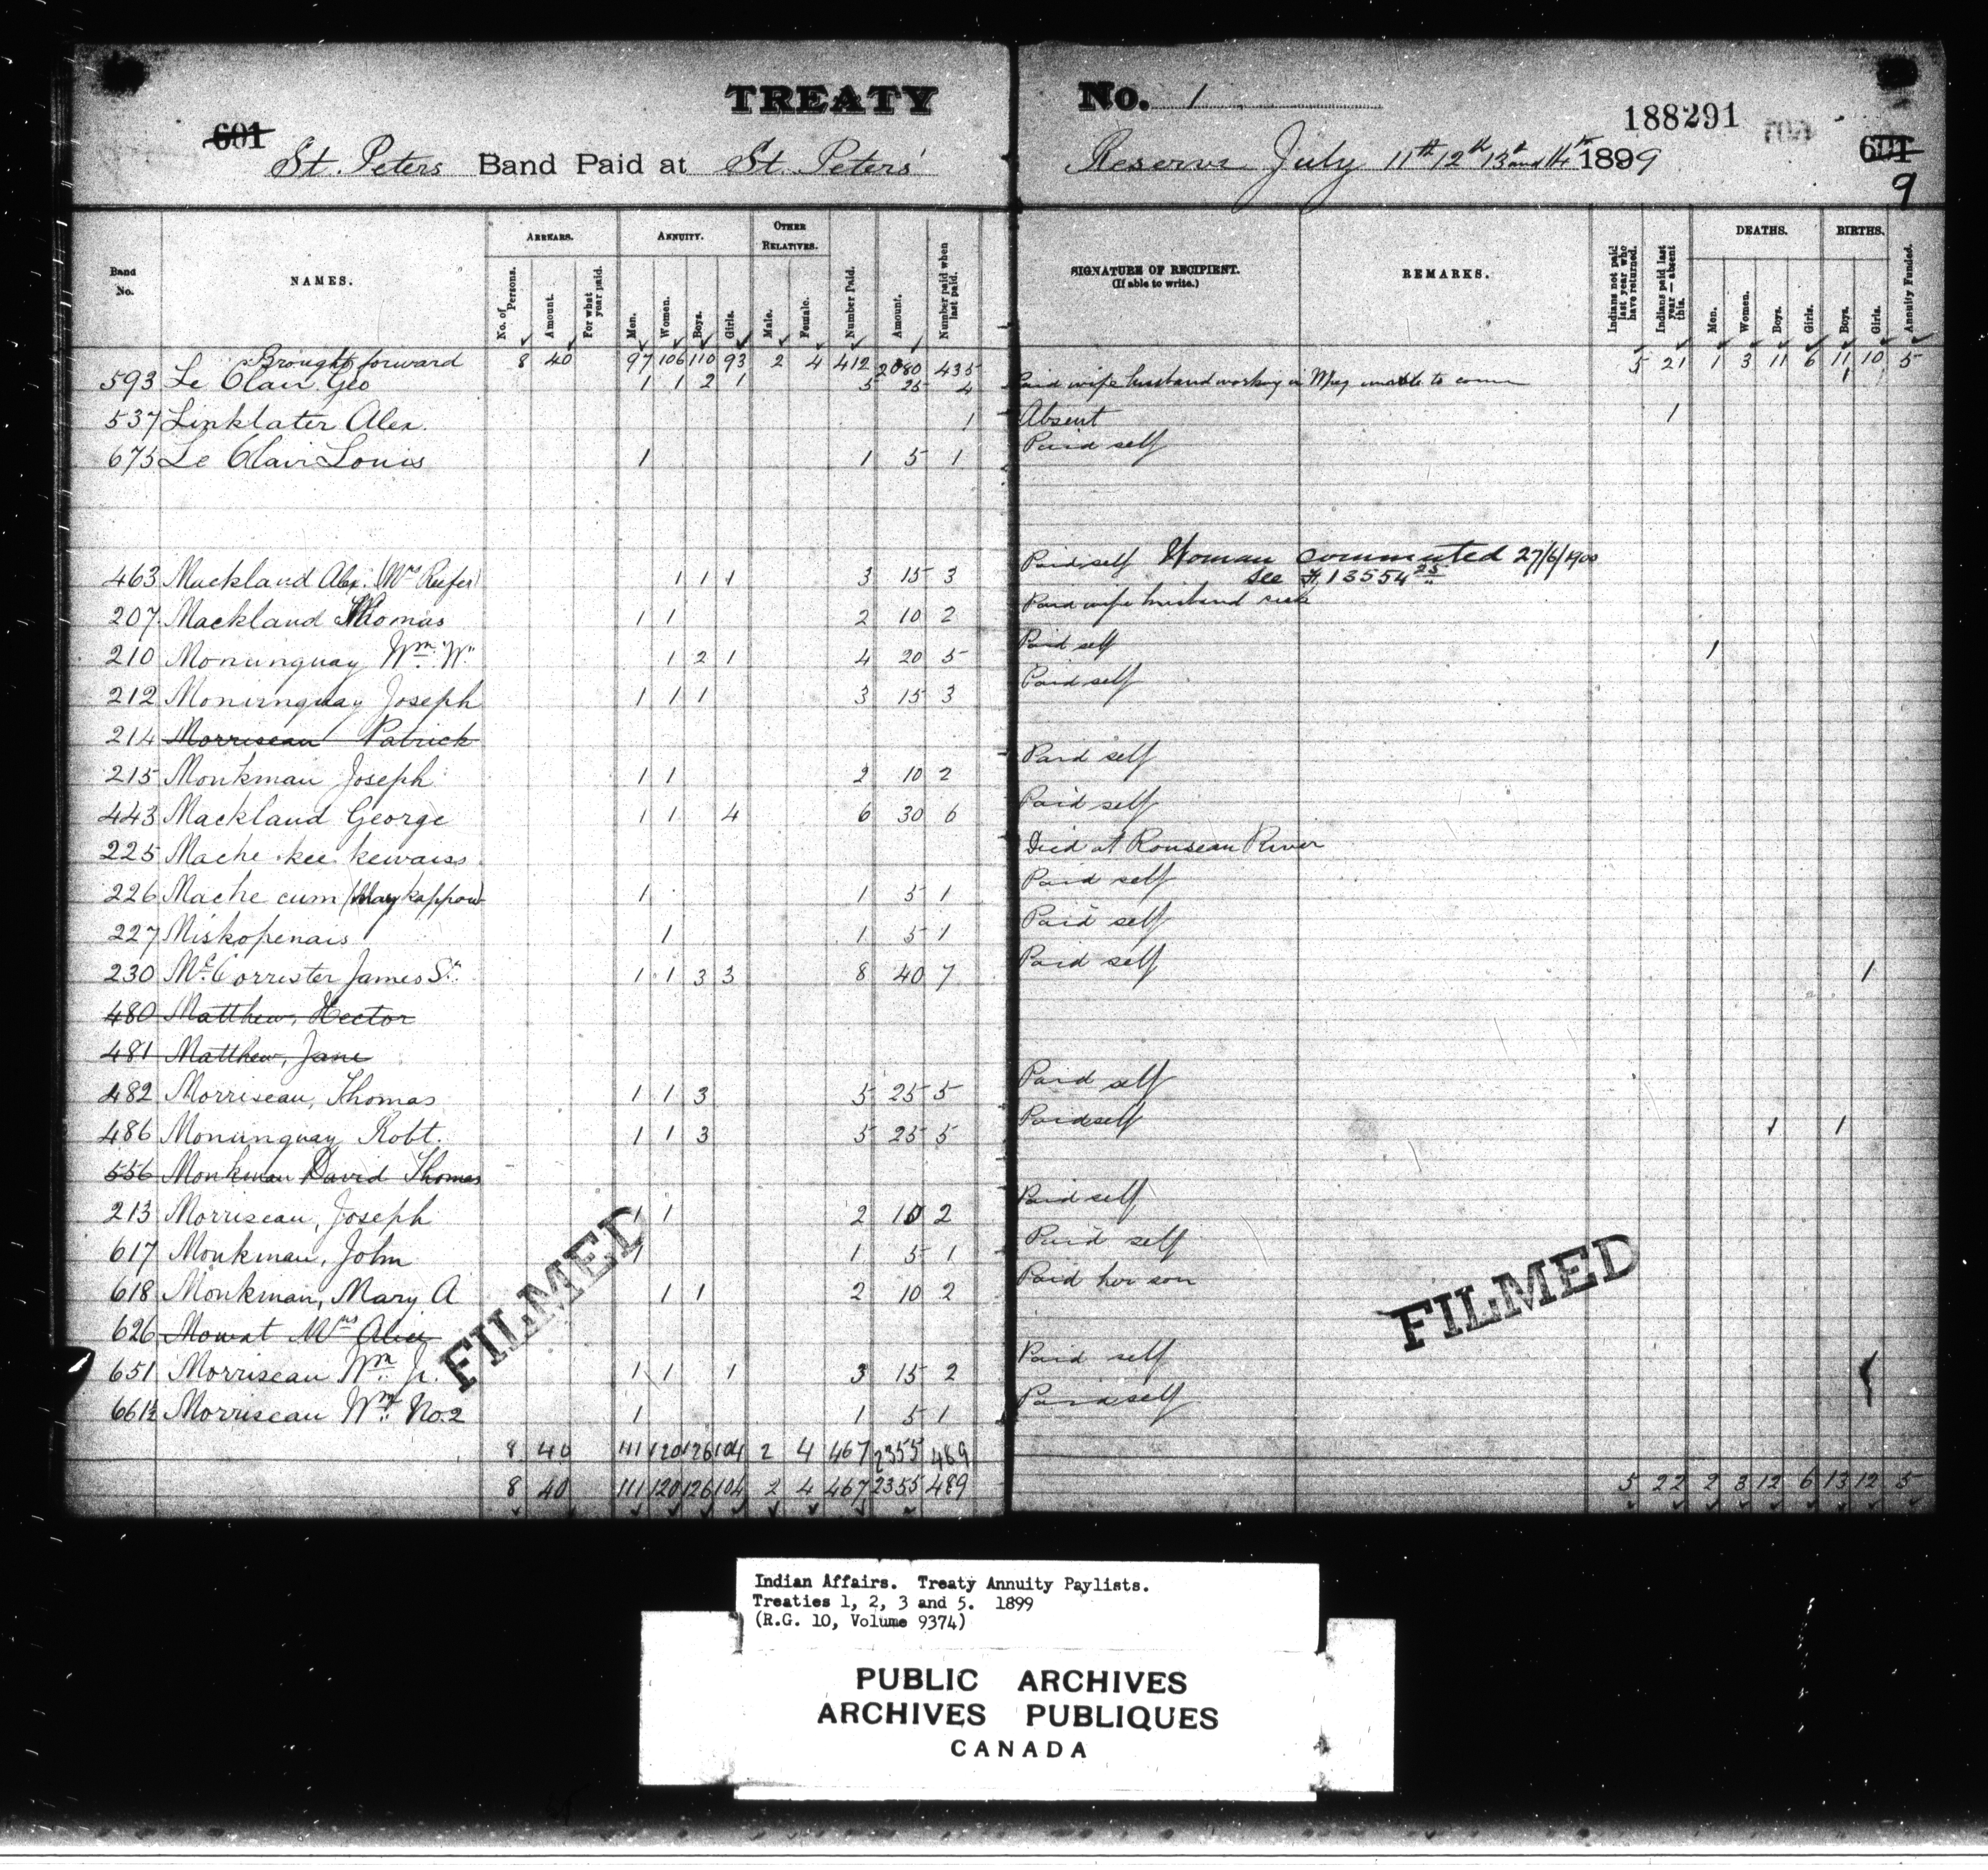 TREATY No. 1
188291
601 601
9
St. Peters Band Paid at St. Peters' Reserve July 11th 12th 13th and 14th 1899
Band No. NAMES. ARREARS. No. of Persons. Amount. For what year paid. ANNUITY. Men. Women. Boys. Girls. OTHER RELATIVES. Male. Female. Number Paid. Amount. Number paid when last paid. SIGNATURE OF RECIPIENT. (If able to write.) REMARKS. Indians not paid last year who have returned. Indians paid last year — absent this. DEATHS. Men. Women. Boys. Girls. BIRTHS. Boys. Girls. Annuity Funded.
Brought forward 8 40 97 106 110 93 2 4 412 2080 435 5 21 1 3 11 6 11 10 5
593 Le Clair Geo 1 1 2 1 5 25 4 Paid wife husband working in Wpg unable to come 1
537 Linklater Alex. 1 Absent 1
675 Le Clair Louis 1 1 5 1 Paid self
463 Mackland Alex. (Mrs Reefer) 1 1 1 3 15 3 Paid self Woman commuted 27/6/1900
see 13554
207 Mackland Thomas 1 1 2 10 2 Paid wife husband sick
210 Moninguay Wm "W" 1 2 1 4 20 5 Paid self 1
212 Moninguay Joseph 1 1 1 3 15 3 Paid self
214 Morriseau Patrick
215 Monkman Joseph 1 1 2 10 2 Paid self
443 Mackland George 1 1 4 6 30 6 Paid self
225 Mache kee kewaiss Died at Rouseau River
226 Mache cum (Maykappow) 1 1 5 1 Paid self
227 Miskopenais 1 1 5 1 Paid self
230 McCorrister James Sr. 1 1 3 3 8 40 7 Paid self 1
480 Matthew, Hector
481 Matthew, Jane
482 Morriseau, Thomas 1 1 3 5 25 5 Paid self
486 Moninguay Robt. 1 1 3 5 25 5 Paid self 1 1
556 Monkman David Thomas
213 Morriseau, Joseph 1 1 2 10 2 Paid self
617 Monkman, John 1 1 5 1 Paid self
618 Monkman, Mary A 1 1 2 10 2 Paid her son
626 Mowat Mrs Alice
651 Morriseau Wm Jr. 1 1 1 3 15 2 Paid self 1
661½ Morriseau Wm No. 2 1 1 5 1 Paid self
8 40 111 120 126 104 2 4 467 2355 489
8 40 111 120 126 104 2 4 467 2355 489 5 22 2 3 12 6 13 12 5
FILMED FILMED
Indian Affairs. Treaty Annuity Paylists.
Treaties 1, 2, 3 and 5. 1899
(R.G. 10, Volume 9374)
PUBLIC ARCHIVES
ARCHIVES PUBLIQUES
CANADA